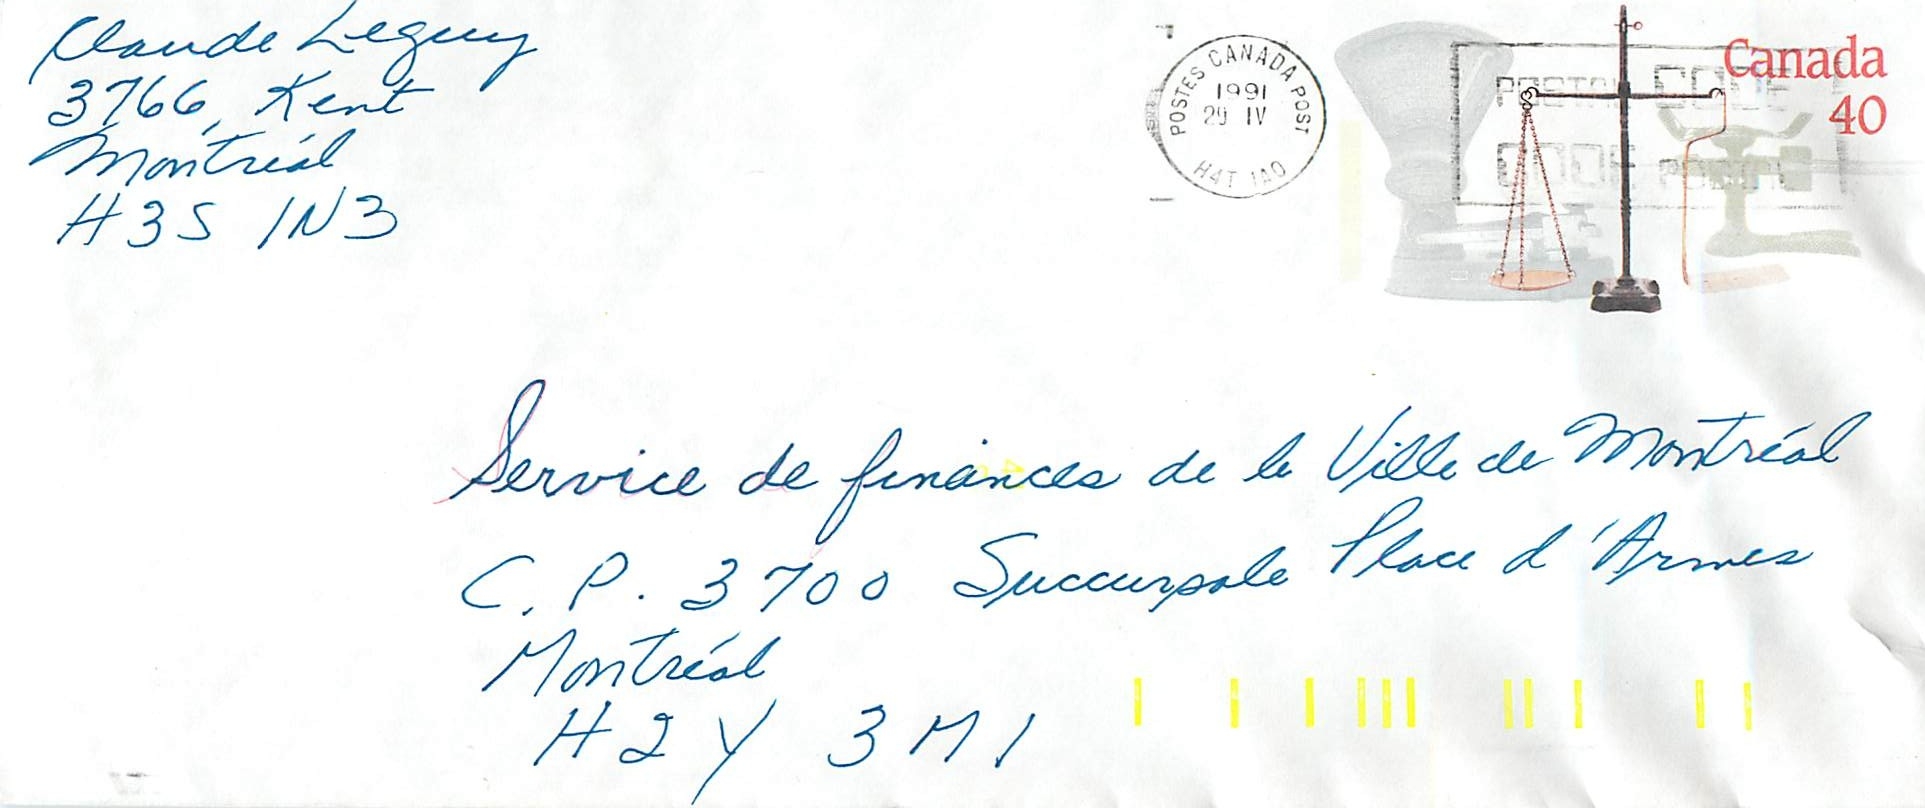 Claude Leguy
3766, Kent
Montréal
H3S 1N3
POSTES CANADA POST
1991
29 IV
H4T 1A0
POSTAL CODE
CODE POSTAL
Canada
40
Service de finances de la Ville de Montréal
C.P. 3700 Succursale Place d'Armes
Montréal
H2Y 3M1